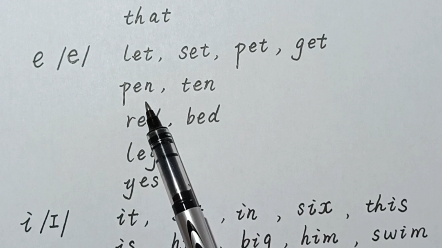 that
e /e/ let, set, pet, get
pen, ten
bed
yes
i /I/ it, in, six, this
is big, him, swim